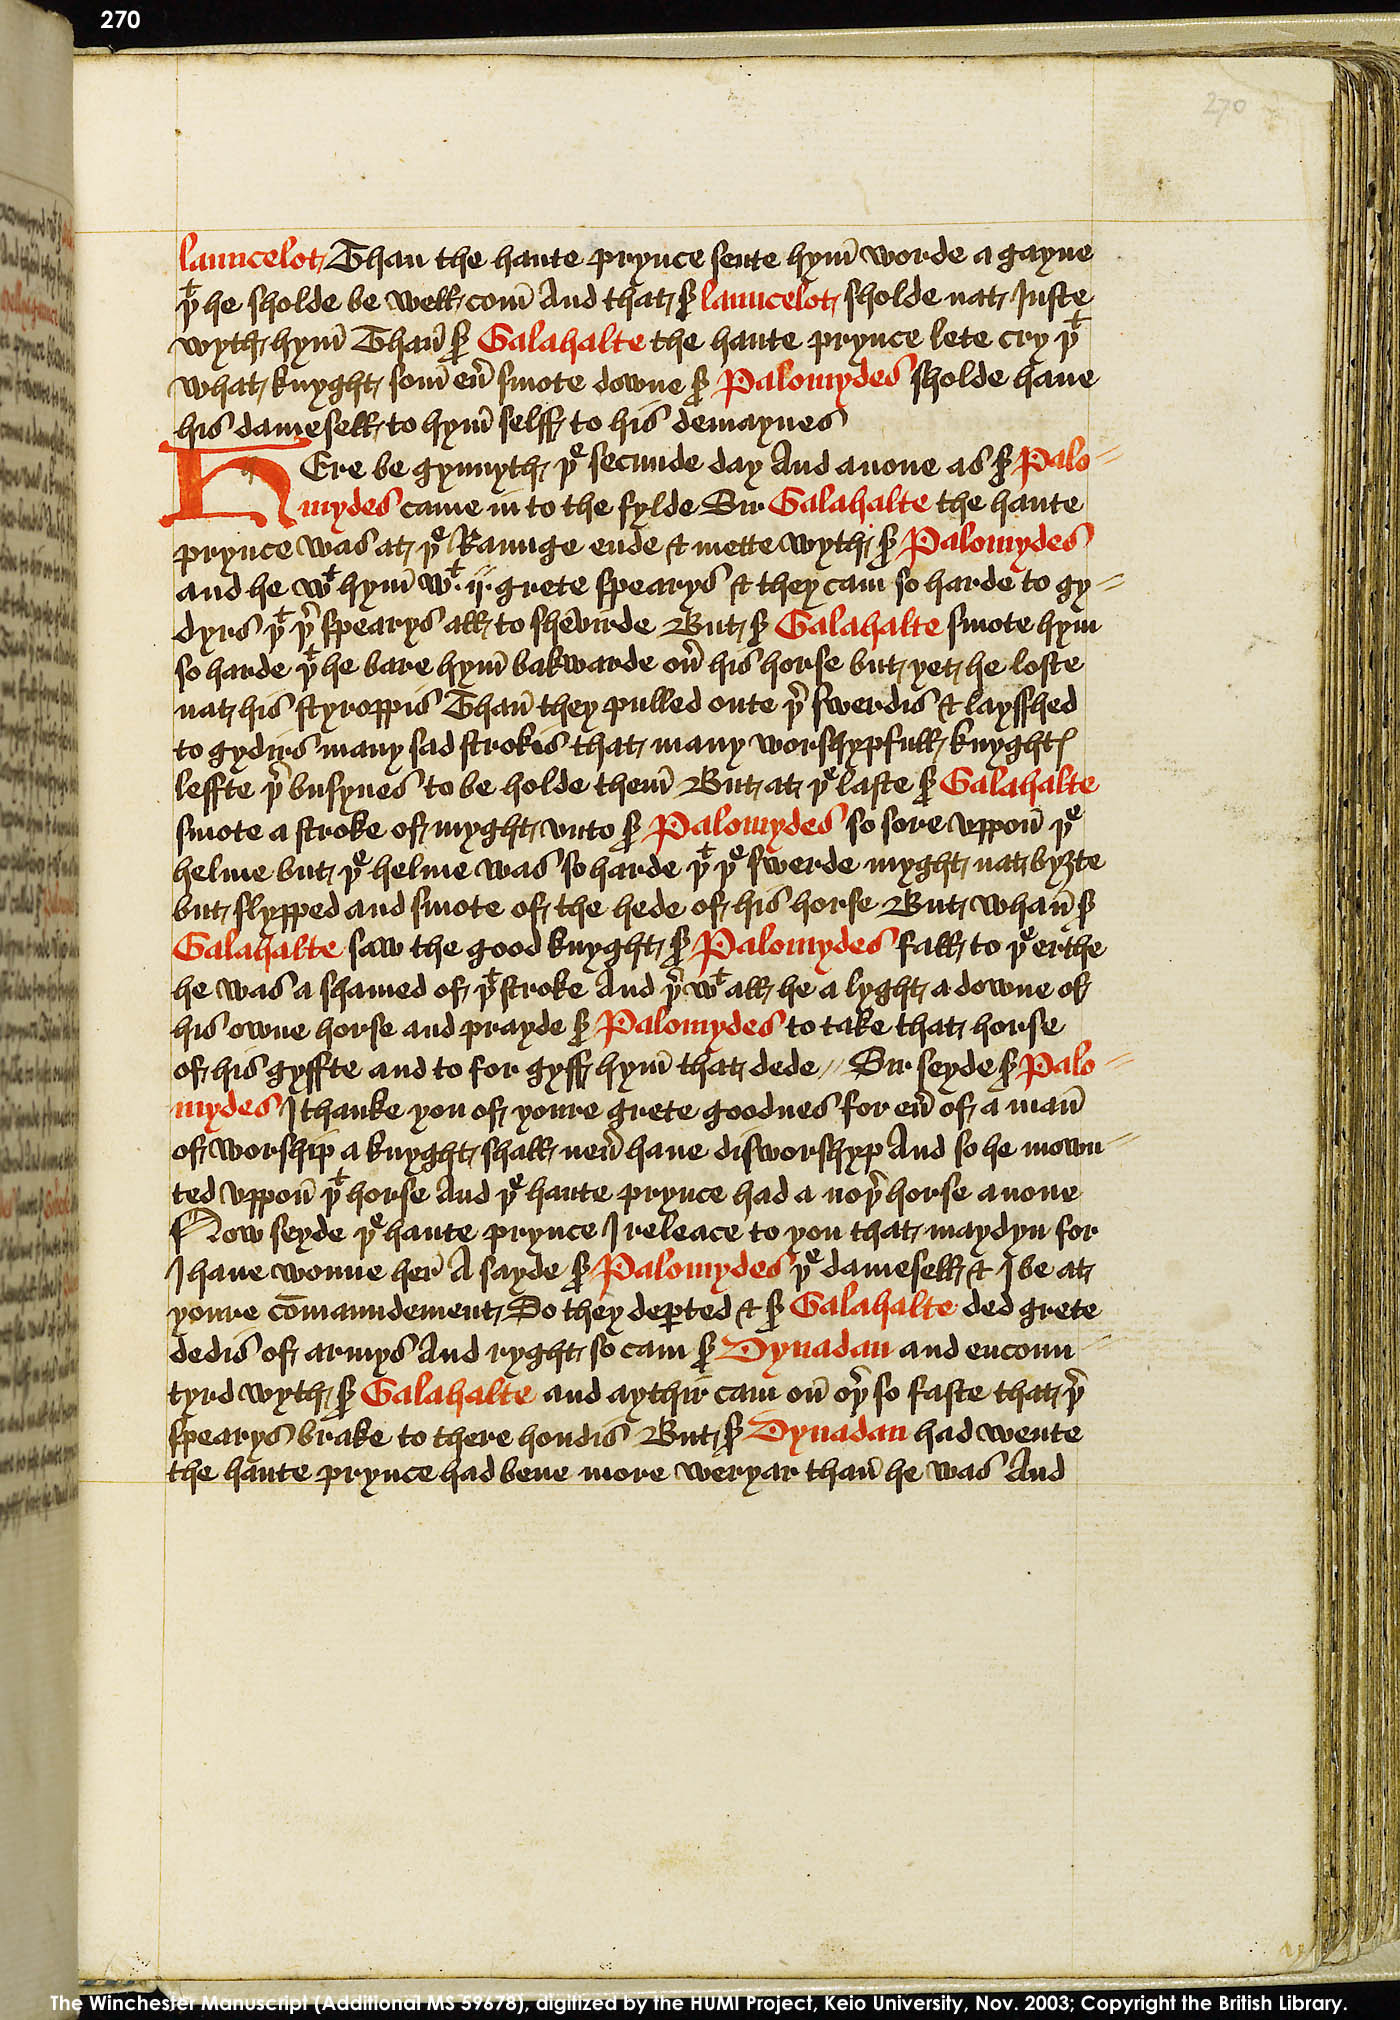 270
270
launcelot Than the haute prynce sente hym̄ worde a gayne
þᵗ he sholde be well com̄ And that sr̄ launcelot sholde nat Juste
wyth hym̄ Than̄ sr̄ Galahalte the haute prynce lete cry þᵗ
what knyght som̄ eũ smote downe sr̄ Palomydes sholde haue
his damesell to hym̄ selff to his demaynes
HEre be gynnyth þᵉ secunde day And anone as sr̄ Palo=
mydes came in to the fylde Sir Galahalte the haute
prynce was at þᵉ Raunge ende & mette wyth sr̄ Palomydes
and he wᵗ hym̄ wᵗ .ij. grete spearys & they cam so harde to gy=
dyrs þᵗ þr̄ spearys all to shevirde But sr̄ Galahalte smote hym
so harde þᵗ he bare hym̄ bakwarde oũ his horse but yet he loste
nat his styroppis Than̄ they pulled oute þr̄ swerdis & laysshed
to gydirs many sad strokis that many worshypfull knyghtꝭ
leffte þr̄ busynes to be holde them̄ But at þᵉ laste sr̄ Galahalte
smote a stroke of myght vnto sr̄ Palomydes so sore vppon̄ þᵉ
helme but þᵉ helme was so harde þᵗ þᵉ swerde myght nat byȝte
but slypped and smote of the hede of his horse But whan̄ sr̄
Galahalte saw the good knyght sr̄ Palomydes fall to þᵉ erthe
he was a shamed of þᵗ stroke And þr̄ wᵗ all he a lyght a downe of
his owne horse and prayde sr̄ Palomydes to take that horse
of his gyffte and to for gyff hym̄ that dede // Sir seyde sr̄ Palo=
mydes I thanke you of youre grete goodnes for eũ of a man̄
of worship a knyght shall neũ haue disworshyp And so he mown=
ted vppon̄ þᵗ horse And þᵉ haute prynce had a noþr̄ horse anone
Now seyde þᵉ haute prynce I releace to you that maydyn for
I haue wonne her̄ A sayde sr̄ Palomydes þᵉ damesell & I be at
youre cōmaundement So they deꝑted & sr̄ Galahalte ded grete
dedis of armys And ryght so cam sr̄ Dynadan and encoun=
tyrd wyth sr̄ Galahalte and aythir cam oñ oþr̄ so faste that þr̄
spearys brake to there hondis But sr̄ Dynadan had wente
the haute prynce had bene more weryar than̄ he was And
The Winchester Manuscript (Additional MS 59678), digitized by the HUMI Project, Keio University, Nov. 2003; Copyright the British Library.